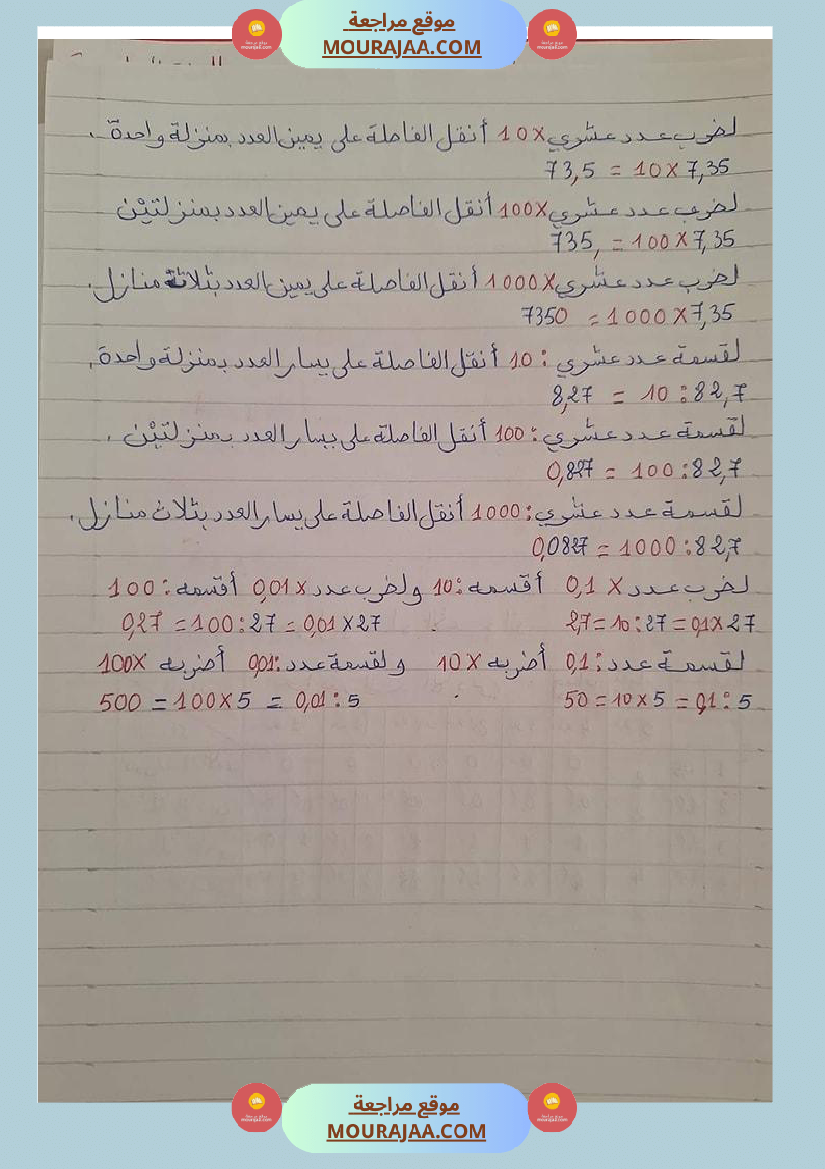 موقع مراجعة
MOURAJAA.COM
لضرب عدد عشري ×10 أنقل الفاصلة على يمين العدد بمنزلة واحدة.
7,35 × 10 = 73,5
لضرب عدد عشري ×100 أنقل الفاصلة على يمين العدد بمنزلتيْن
7,35 × 100 = 735,
لضرب عدد عشري ×1000 أنقل الفاصلة على يمين العدد بثلاثة منازل.
7,35 × 1000 = 7350
لقسمة عدد عشري : 10 أنقل الفاصلة على يسار العدد بمنزلة واحدة.
82,7 : 10 = 8,27
لقسمة عدد عشري : 100 أنقل الفاصلة على يسار العدد بمنزلتيْن.
82,7 : 100 = 0,827
لقسمة عدد عشري : 1000 أنقل الفاصلة على يسار العدد بثلاث منازل.
82,7 : 1000 = 0,0827
لضرب عدد × 0,1 أقسمه : 10 ولضرب عدد × 0,01 أقسمه : 100
27 × 0,1 = 27 : 10 = 2,7 . 27 × 0,01 = 27 : 100 = 0,27
لقسمة عدد : 0,1 أضربه × 10 ولقسمة عدد : 0,01 أضربه × 100
5 : 0,1 = 5 × 10 = 50 . 5 : 0,01 = 5 × 100 = 500
موقع مراجعة
MOURAJAA.COM